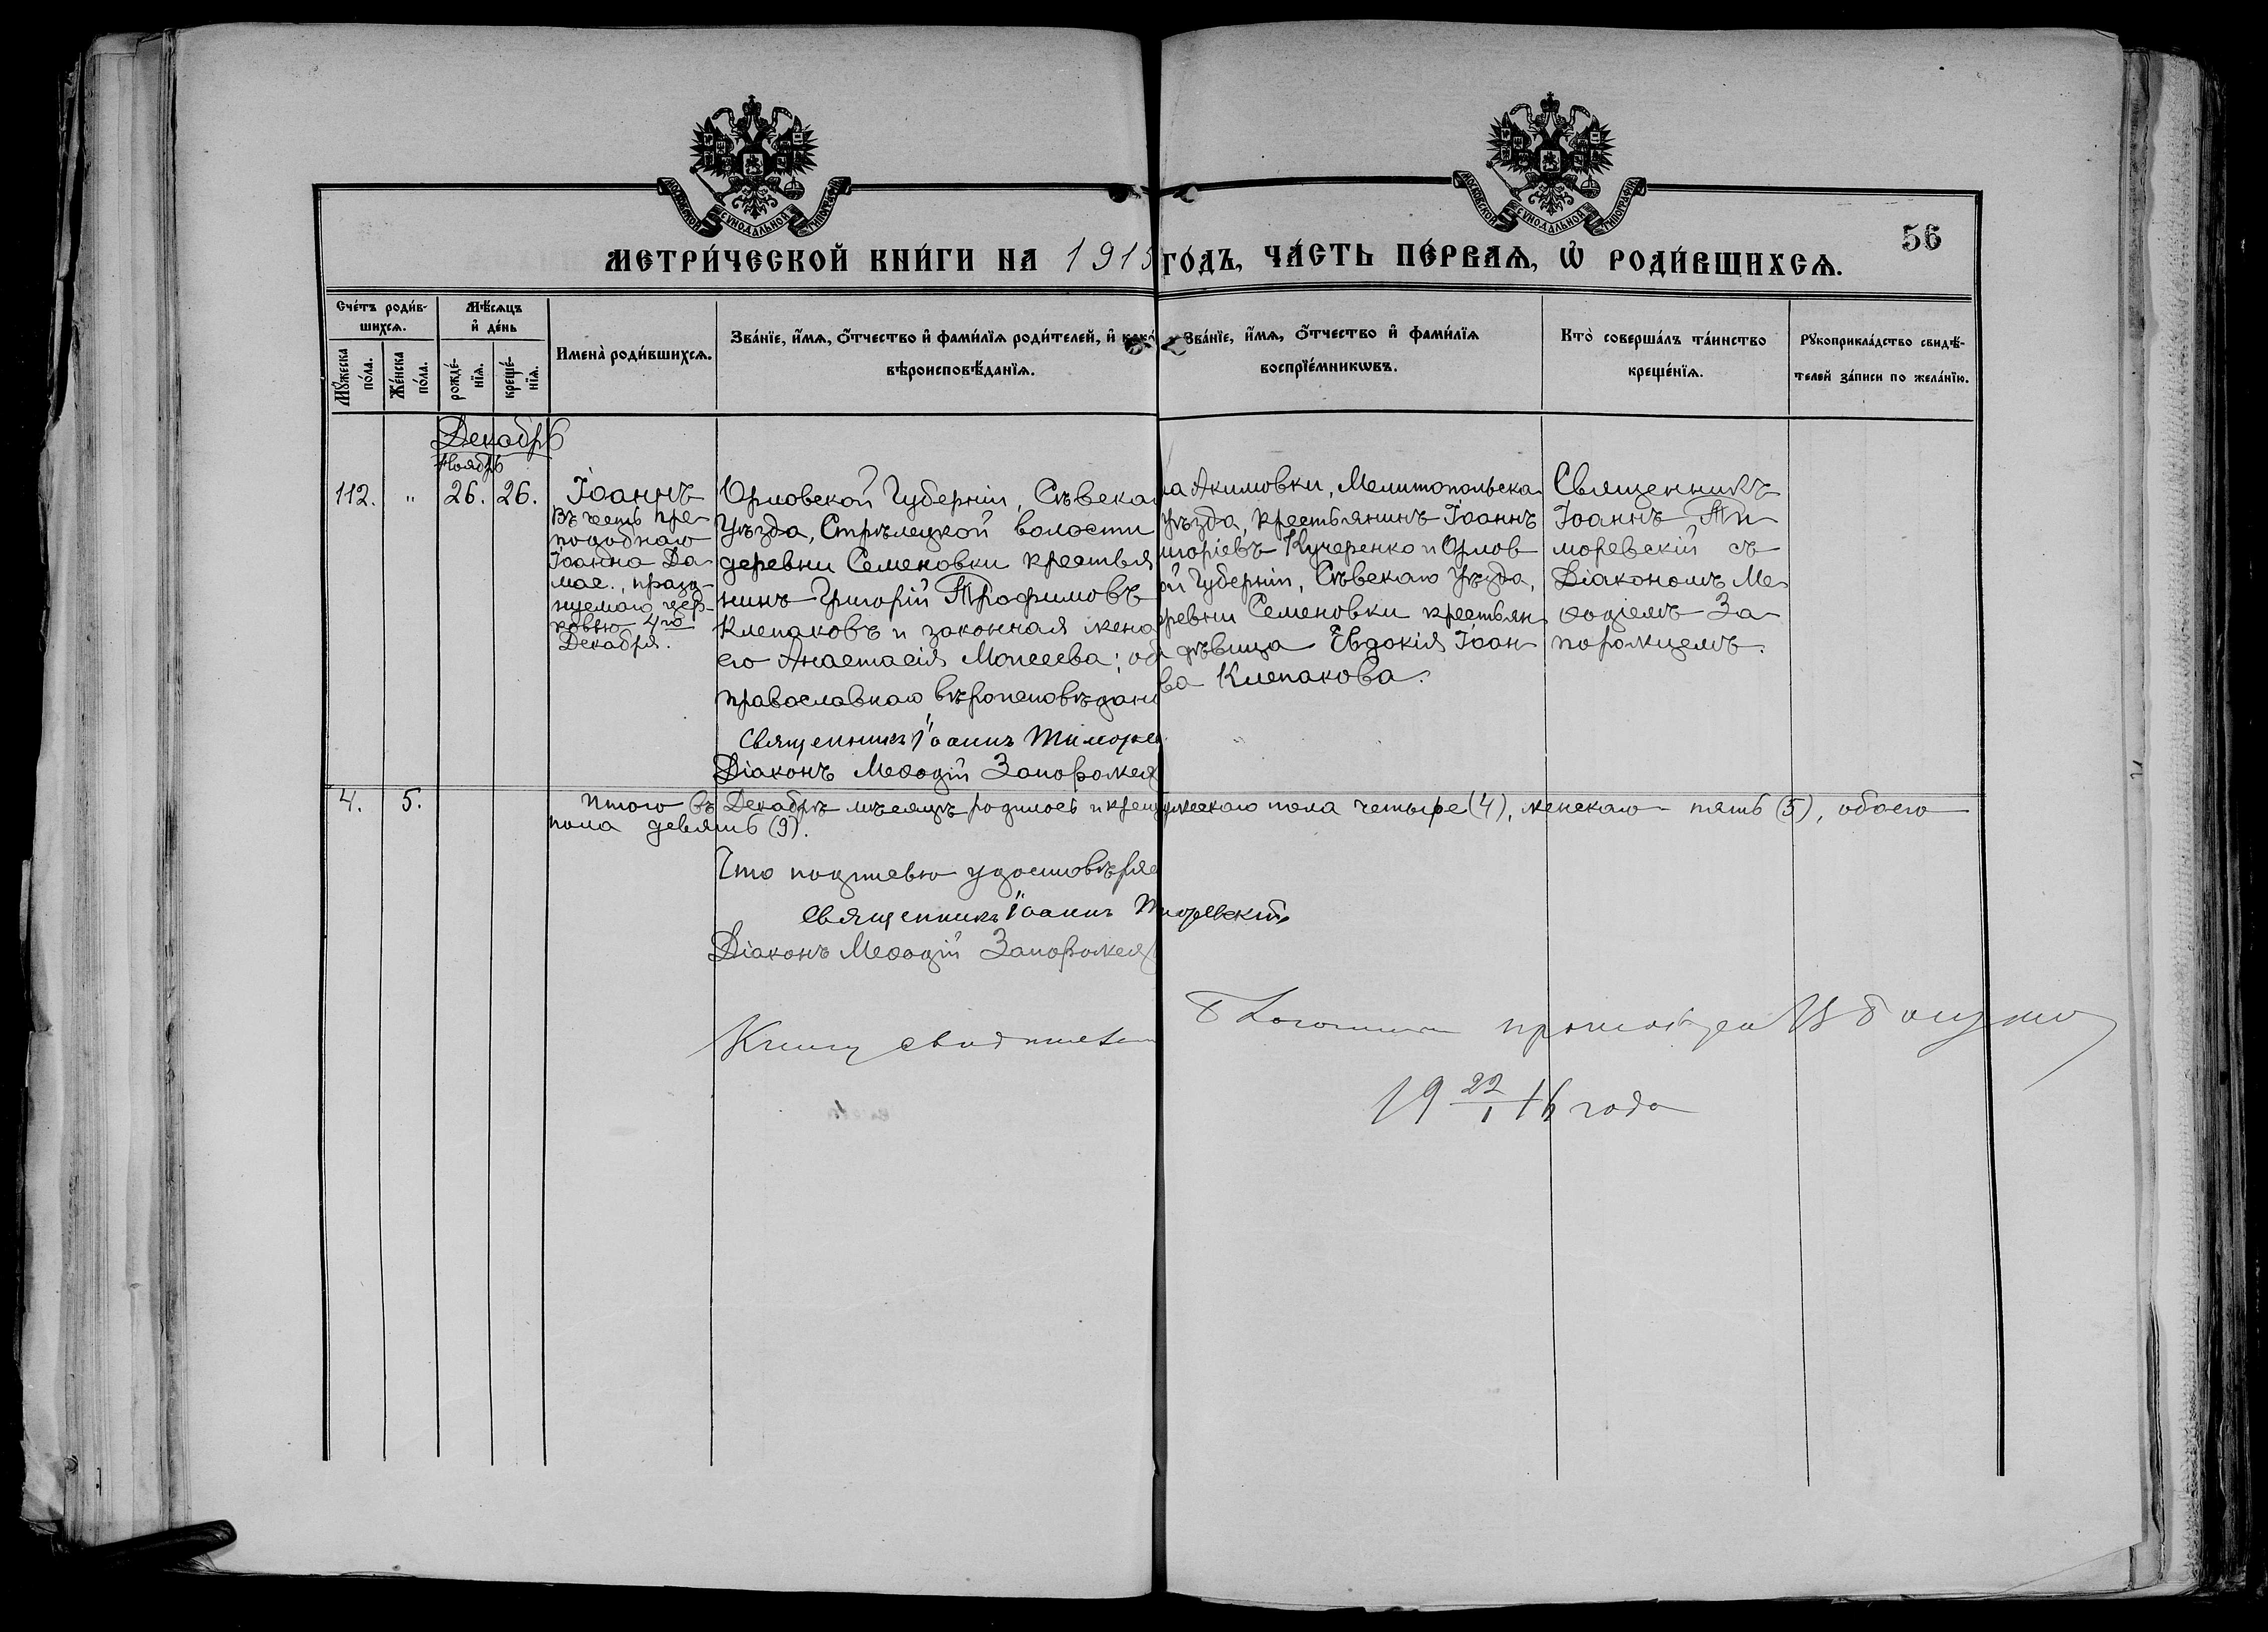 МОСКОВСКОЙ СѴНОДАЛЬНОЙ ТИПОГРАФІИ
МОСКОВСКОЙ СѴНОДАЛЬНОЙ ТИПОГРАФІИ
56
МЕТРИ́ЧЕСКОЙ КНИ́ГИ НА 1915
ГО́ДЪ, ЧА́СТЬ ПЕ́РВАѦ, Ѡ҆ РОДИ́ВШИХСѦ.
Сче́тъ роди́в-
шихсѧ.
Мꙋ́жеска по́ла.
Же́нска по́ла.
Мѣ́сѧцъ и҆ де́нь
рожде́-нїѧ.
креще́-нїѧ.
Имена̀ роди́вшихсѧ.
Зва́нїе, и҆́мѧ, ѻ҆́тчество и҆ фами́лїѧ роди́телей, и҆ како́
вѣроисповѣ́данїѧ.
Зва́нїе, и҆́мѧ, ѻ҆́тчество и҆ фами́лїѧ
воспрїе́мникѡвъ.
Кто̀ соверша́лъ та́инство
креще́нїѧ.
Рꙋкоприкла́дство свидѣ́-
телей за́писи по жела́нїю.
Декабрь
Ноябрь
112. " 26. 26.
Іоаннъ
Въ честь пре-
подобнаго
Іоанна Да-
мас., празд-
нуемаго цер-
ковью 4го
Декабря.
Орловской Губерніи, Сѣвска
Уѣзда, Стрѣлецкой волости
деревни Семеновки крестья
нинъ Григорій Трофимовъ
Клепаковъ и законная жена
его Анастасія Моисеева; об
православнаго вѣроисповѣдан
Священникъ Іоаннъ Тиморе
Діаконъ Меѳодій Запорожс
ла Акимовки, Мелитопольска
Уѣзда, крестьянинъ Іоаннъ
игоріевъ Кучеренко и Орлов
ой Губерніи, Сѣвскаго Уѣзда,
ревни Семеновки крестьян
дѣвица Евдокія Іоан
ва Клепакова.
Священникъ
Іоаннъ Ти-
моревскій съ
Діакономъ Ме-
ѳодіемъ За-
порожцемъ.
4. 5.
Итого въ Декабрѣ мѣсяцѣ родилось и крещ
ужескаго пола четыре (4), женскаго - пять (5), обоего
пола девять (9).
Что подписью удостовѣряе
Священникъ Іоаннъ Тиморевскій
Діаконъ Меѳодій Запорожс
Книгу
19 22/1 16 года